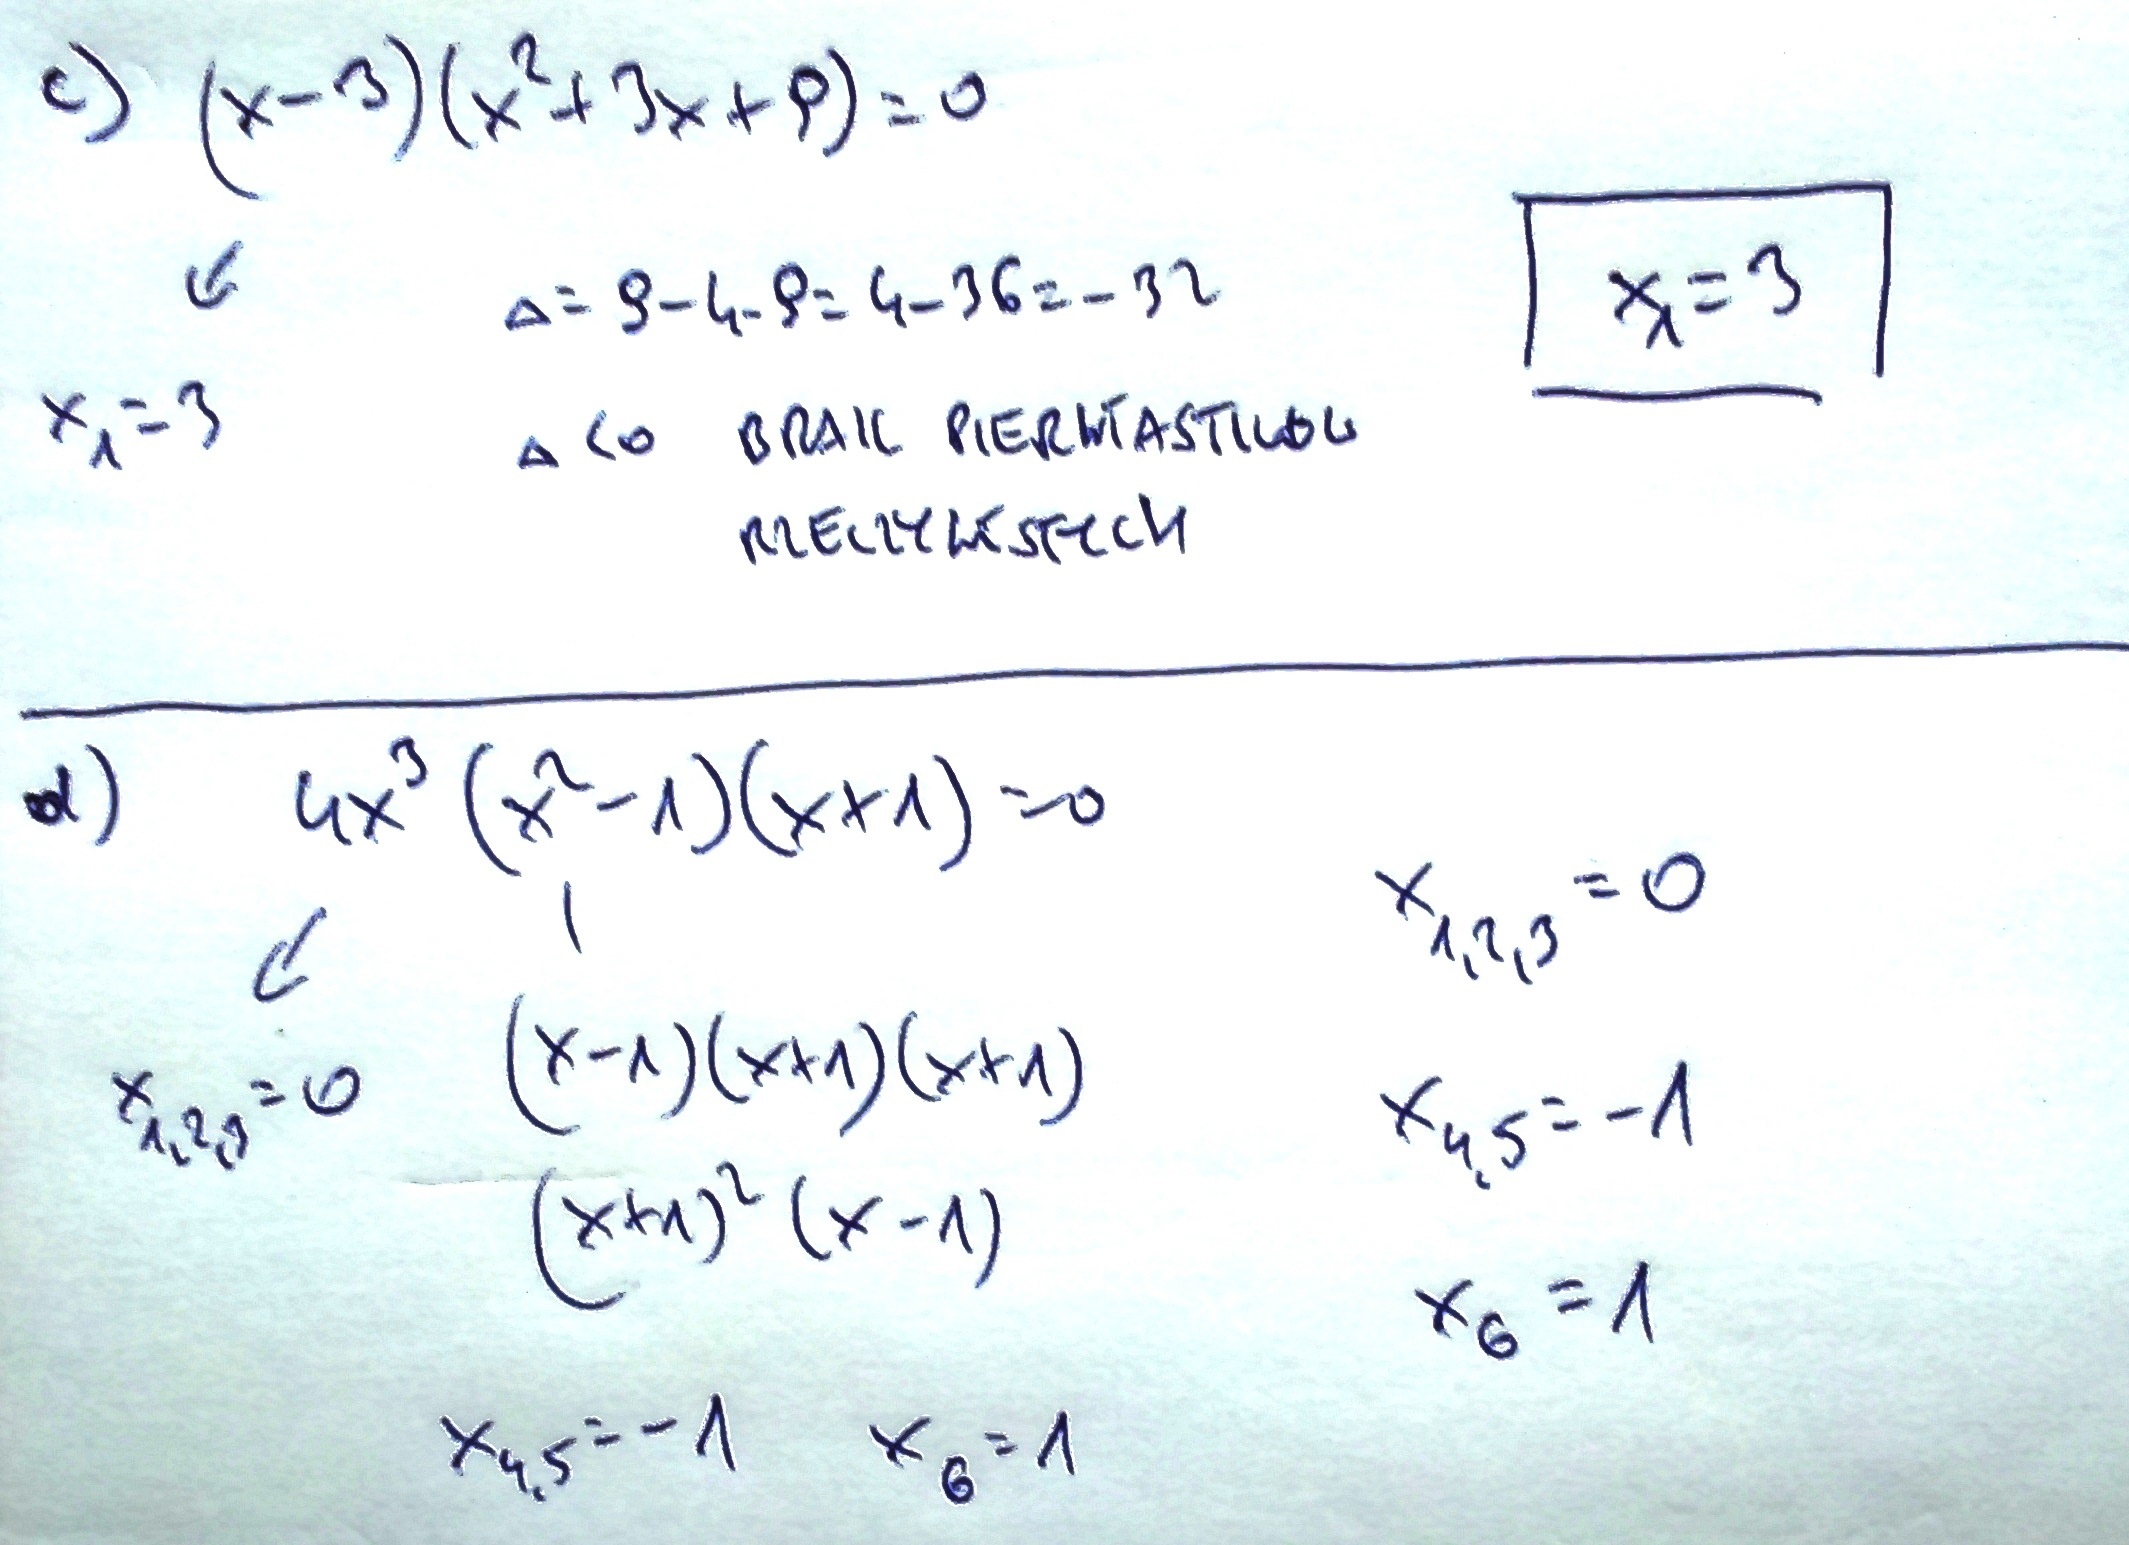 c) (x-3)(x²+3x+9)=0
x₁=3
Δ=9-4·9=4-36=-32
Δ<0 BRAK PIERWIASTKÓW
RZECZYWISTYCH
x₁=3
d) 4x³(x²-1)(x+1)=0
x₁,₂,₃=0
(x-1)(x+1)(x+1)
(x+1)²(x-1)
x₄,₅=-1 x₆=1
x₁,₂,₃=0
x₄,₅=-1
x₆=1